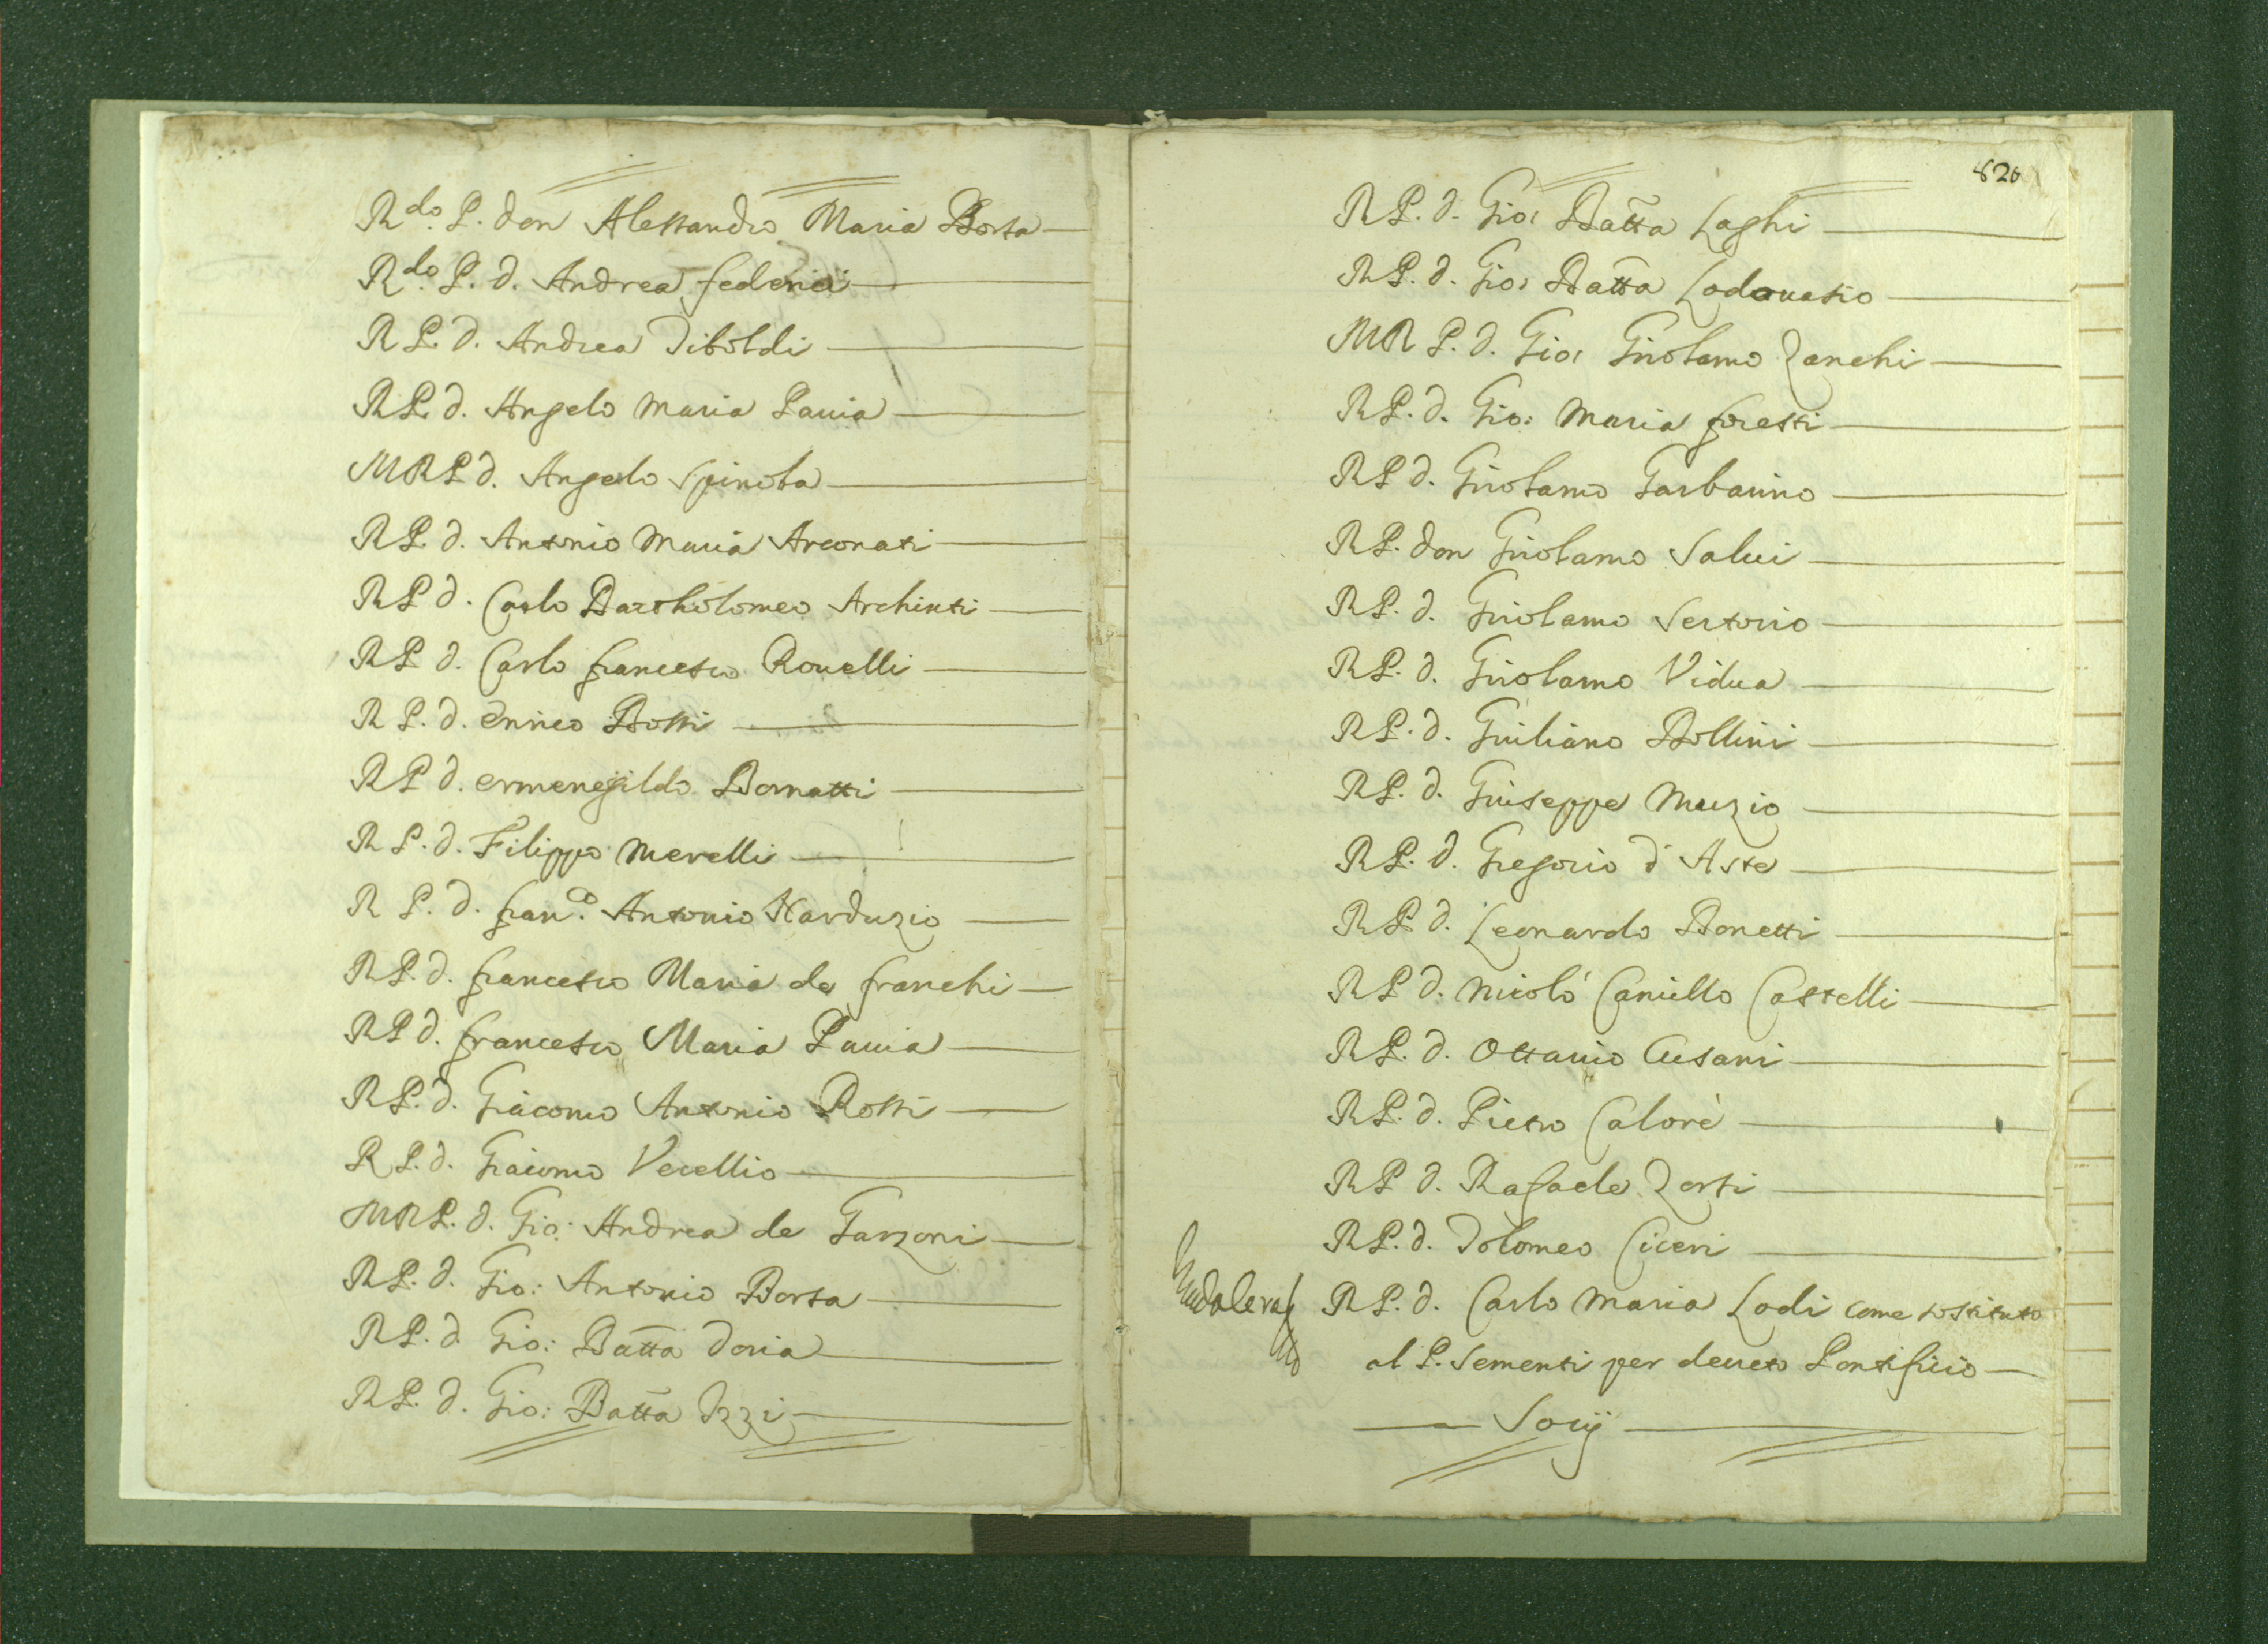 Rdo. P. don Alessandro Maria Borsa
Rdo. P. d. Andrea federici
R P. d. Andrea Tiboldi
R P. d. Angelo Maria Pauia
M R P d. Angelo Spinola
R P. d. Antonio Maria Arconati
R P d. Carlo Bartholomeo Archinti
R P d. Carlo francesco Rouelli
R P. d. Enrico Bossi
R P d. Ermenegildo Bornatti
R P. d. Filippo Merelli
R P. d. fran.co Antonio Narduzio
R P. d. francesco Maria de franchi
R P d. francesco Maria Pauia
R P. d. Giacomo Antonio Rossi
R P. d. Giacomo Vecellio
M R P. d. Gio: Andrea de Garzoni
R P. d. Gio: Antonio Borsa
R P. d Gio: Batta Doria
R P. d. Gio: Batta Izzi
820
R P. d. Gio: Batta Laghi
R P. d. Gio: Batta Lodouasio
M R P. d. Gio: Girolamo Zanchi
R P. d. Gio: Maria foresti
R P d. Girolamo Garbarino
R P. don Girolamo Salui
R P. d. Girolamo Sertorio
R P. d. Girolamo Vidua
R P. d. Giuliano Bollini
R P. d. Giuseppe Muzio
R P. d. Gregorio d'Aste
R P d. Leonardo Bonetti
R P d. Nicolò Camillo Castelli
R P. d. Ottauio Cusani
R P. d. Pietro Calorè
R P d. Rafaele Zorti
R P. d. Tolomeo Ciceri
R P. d. Carlo Maria Lodi come sostituto
al P. Sementi per decreto Pontificio
Socij